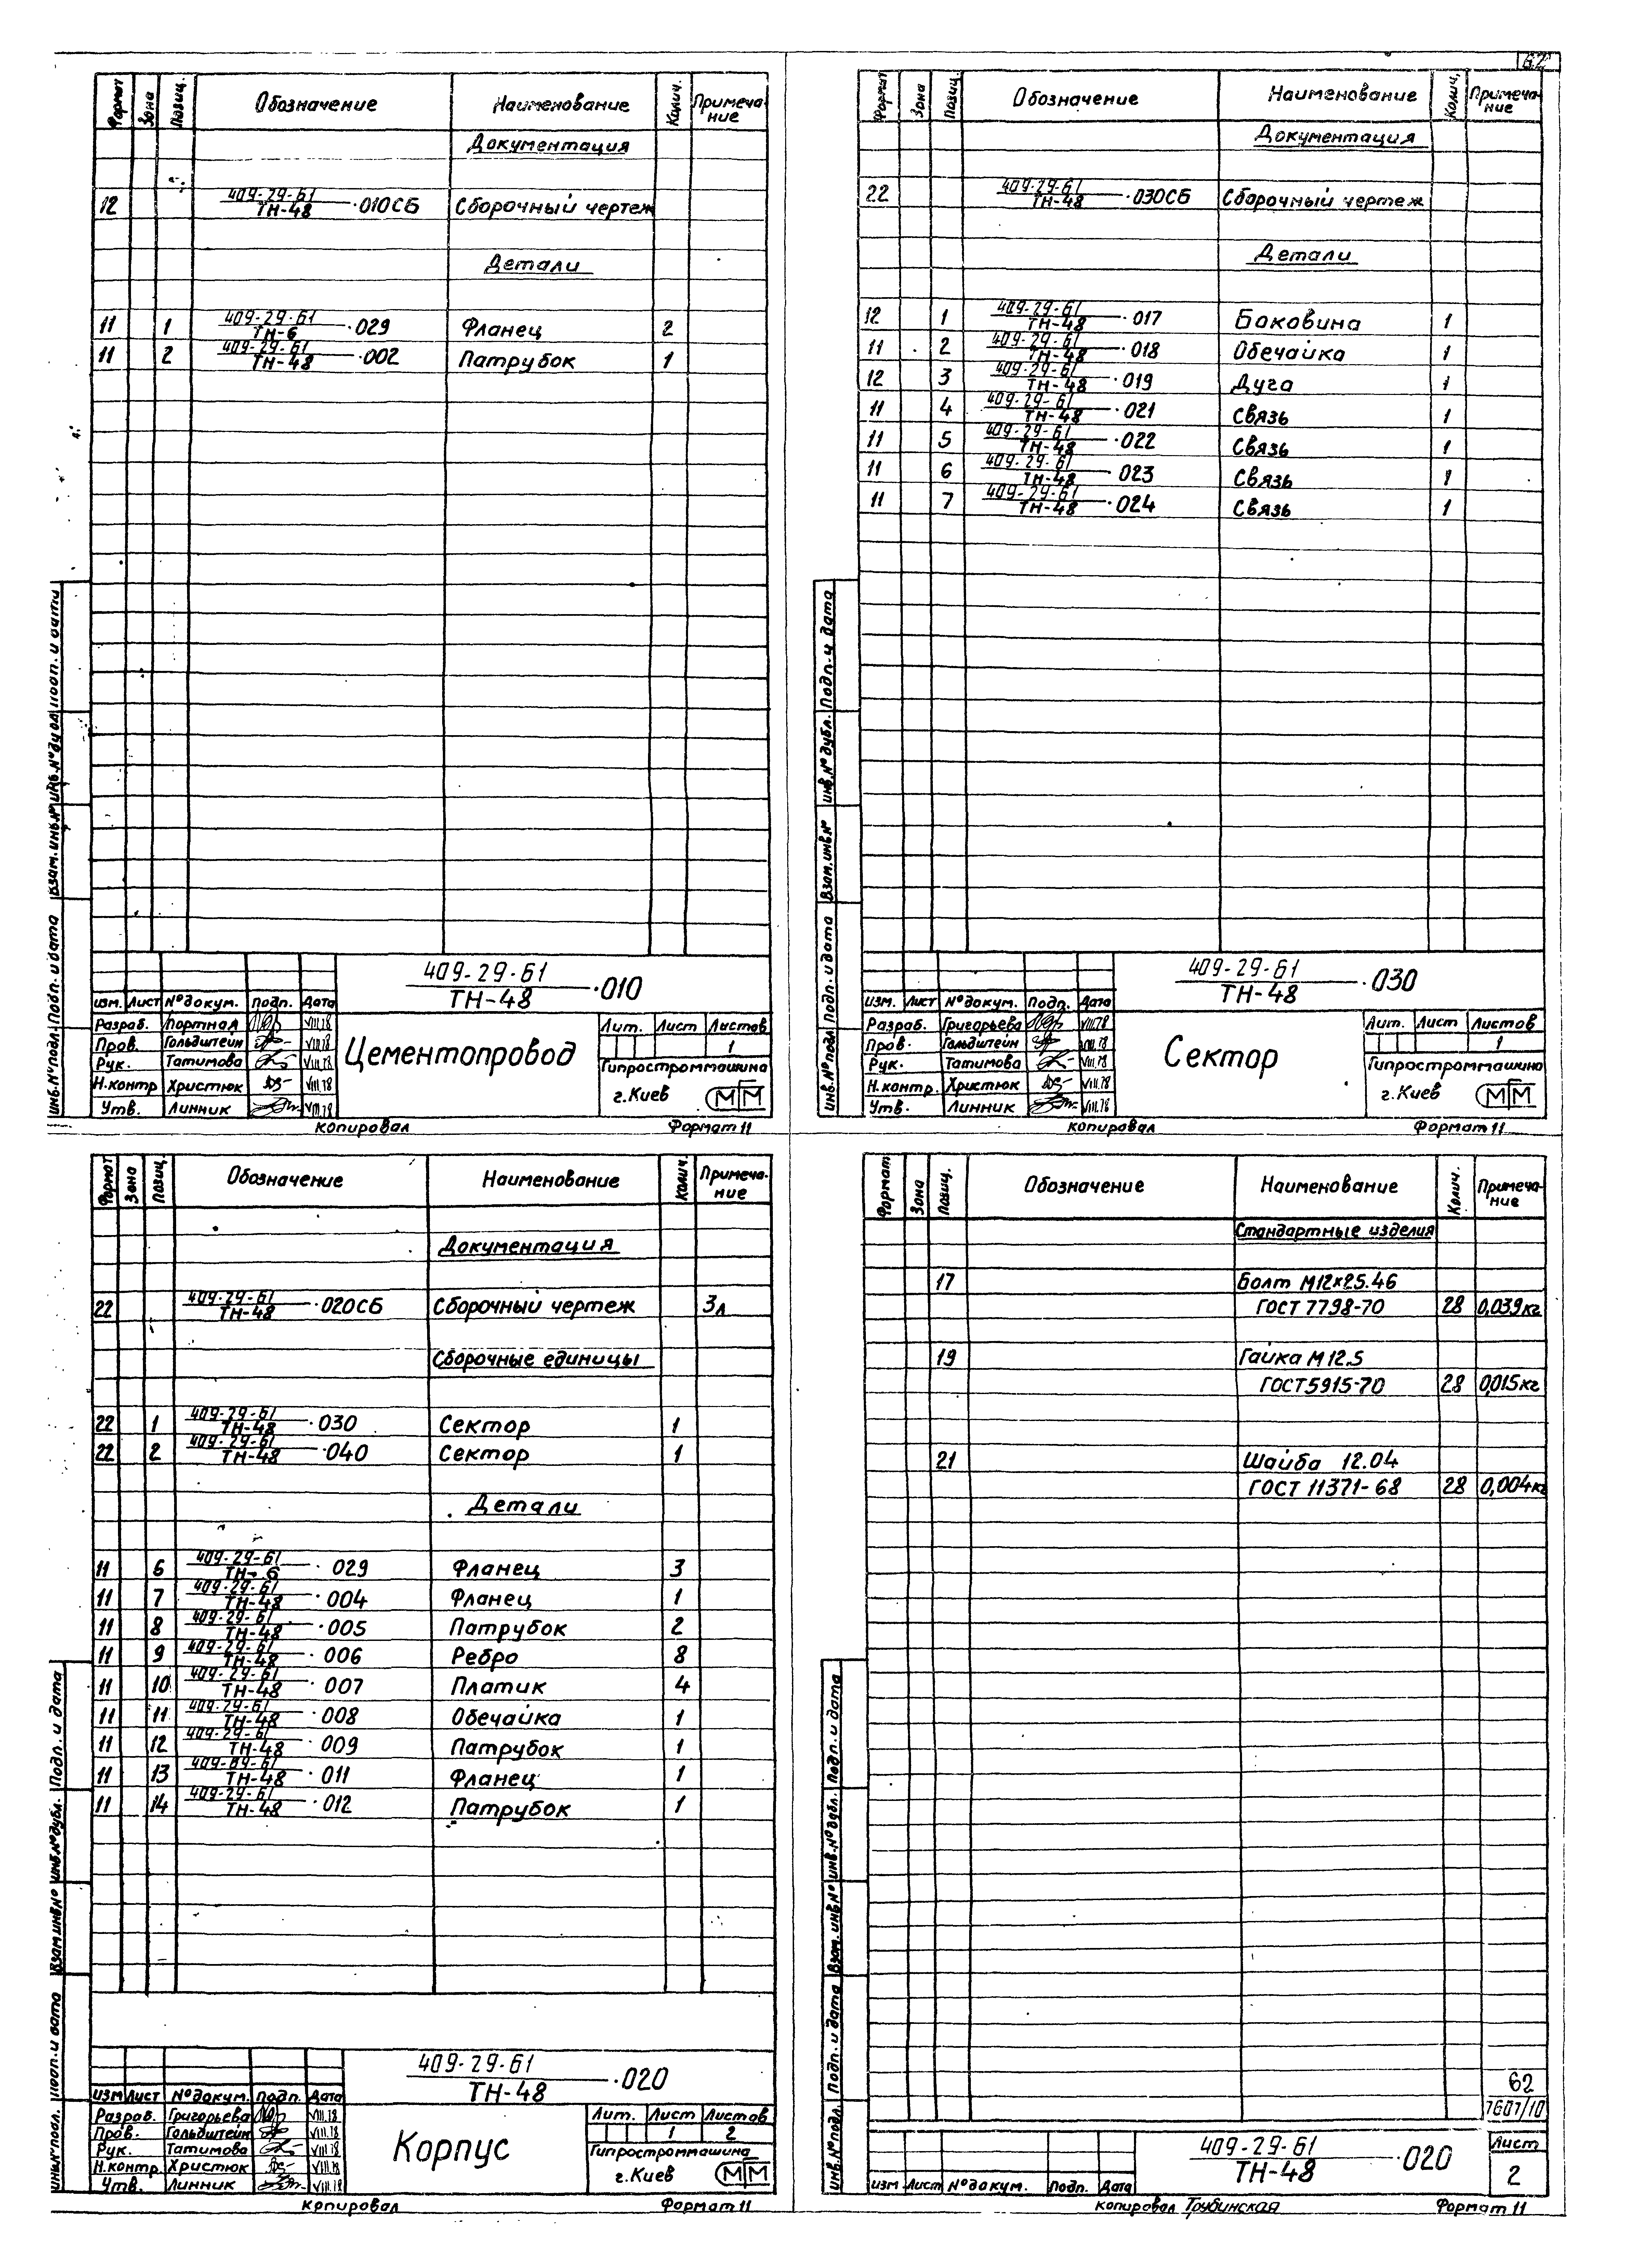 62
Формат Зона Позиц. Обозначение Наименование Колич. Примечание
Документация
12 409-29-61/ТН-48 ·010СБ Сборочный чертеж
Детали
11 1 409-29-61/ТН-6 ·029 Фланец 2
11 2 409-29-61/ТН-48 ·002 Патрубок 1
Инв.№подл. Подп. и дата Взам.инв.№ Инв.№дубл. Подп. и дата
409-29-61/ТН-48 ·010
Изм. Лист №докум. Подп. Дата
Разраб. Портная VIII.78
Пров. Гольдштейн VIII.78
Рук. Татимова VIII.78
Н.контр Христюк VIII.78
Утв. Линник VIII.78
Цементопровод
Лит. Лист Листов
1
Гипростроммашина
г.Киев
Копировал Формат 11
Формат Зона Позиц. Обозначение Наименование Колич. Примечание
Документация
22 409-29-61/ТН-48 ·030СБ Сборочный чертеж
Детали
12 1 409-29-61/ТН-48 ·017 Боковина 1
11 2 409-29-61/ТН-48 ·018 Обечайка 1
12 3 409-29-61/ТН-48 ·019 Дуга 1
11 4 409-29-61/ТН-48 ·021 Связь 1
11 5 409-29-61/ТН-48 ·022 Связь 1
11 6 409-29-61/ТН-48 ·023 Связь 1
11 7 409-29-61/ТН-48 ·024 Связь 1
Инв.№подл Подп. и дата Взам.инв.№ Инв.№дубл. Подп. и дата
409-29-61/ТН-48 ·030
Изм. Лист №докум. Подп. Дата
Разраб. Григорьева VIII.78
Пров. Гольдштейн VIII.78
Рук. Татимова VIII.78
Н.контр. Христюк VIII.78
Утв. Линник VIII.78
Сектор
Лит. Лист Листов
1
Гипростроммашина
г.Киев
Копировал Формат 11
Формат Зона Позиц. Обозначение Наименование Колич. Примечание
Документация
22 409-29-61/ТН-48 ·020СБ Сборочный чертеж 3л
Сборочные единицы
22 1 409-29-61/ТН-48 ·030 Сектор 1
22 2 409-29-61/ТН-48 ·040 Сектор 1
Детали
11 6 409-29-61/ТН-6 ·029 Фланец 3
11 7 409-29-61/ТН-48 ·004 Фланец 1
11 8 409-29-61/ТН-48 ·005 Патрубок 2
11 9 409-29-61/ТН-48 ·006 Ребро 8
11 10 409-29-61/ТН-48 ·007 Платик 4
11 11 409-29-61/ТН-48 ·008 Обечайка 1
11 12 409-29-61/ТН-48 ·009 Патрубок 1
11 13 409-29-61/ТН-48 ·011 Фланец 1
11 14 409-29-61/ТН-48 ·012 Патрубок 1
Инв.№подл. Подп. и дата Взам.инв.№ Инв.№дубл. Подп. и дата
409-29-61/ТН-48 ·020
Изм Лист №докум. Подп. Дата
Разраб. Григорьева VIII.78
Пров. Гольдштейн VIII.78
Рук. Татимова VIII.78
Н.контр. Христюк VIII.78
Утв. Линник VIII.78
Корпус
Лит. Лист Листов
1 2
Гипростроммашина
г.Киев
Копировал Формат 11
Формат Зона Позиц. Обозначение Наименование Колич. Примечание
Стандартные изделия
17 Болт М12×25.46
ГОСТ 7798-70 28 0,039кг
19 Гайка М12.5
ГОСТ 5915-70 28 0,015кг
21 Шайба 12.04
ГОСТ 11371-68 28 0,004кг
Инв.№подл. Подп. и дата Взам.инв.№ Инв.№дубл. Подп. и дата
62
7607/10
409-29-61/ТН-48 ·020
Лист
2
Изм Лист №докум. Подп. Дата
Копировал Трубинская Формат 11